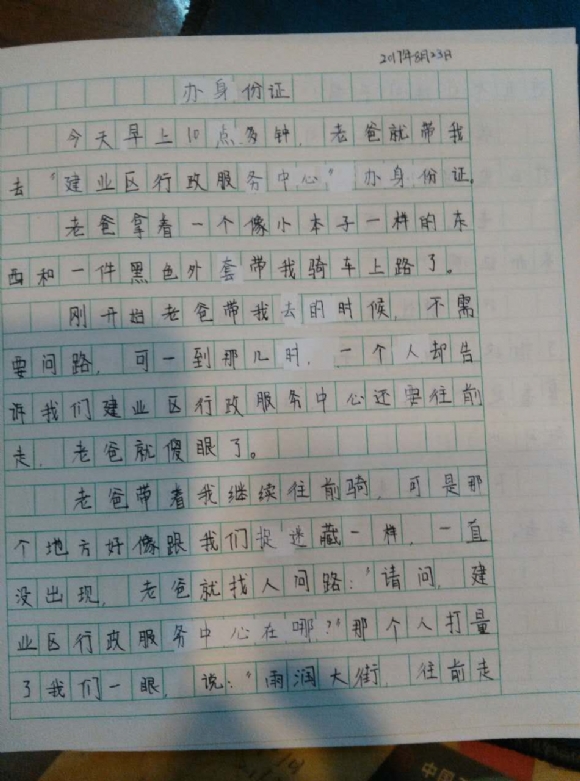 2017年8月23日
办身份证
今天早上10点多钟,老爸就带我
去“建业区行政服务中心”办身份证。
老爸拿着一个像小本子一样的东
西和一件黑色外套带我骑车上路了。
刚开始老爸带我去的时候,不需
要问路,可一到那儿时,一个人却告
诉我们建业区行政服务中心还要往前
走,老爸就傻眼了。
老爸带着我继续往前骑,可是那
个地方好像跟我们捉迷藏一样,一直
没出现,老爸就找人问路:“请问,建
业区行政服务中心在哪?”那个人打量
了我们一眼,说:“雨润大街,往前走